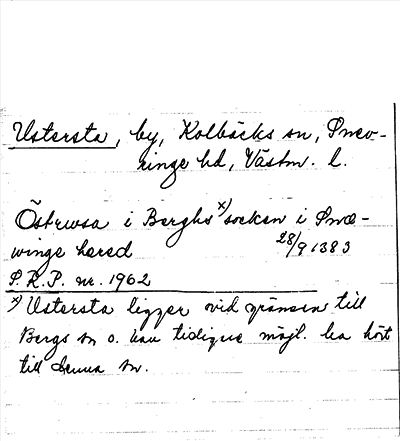 Ustersta, by, Kolbäcks sn, Snev-
ringe hd, Västm. l.
Östrwsa i Berghs x) socken i Snæ-
winge hered 28/9 1383
S.R.P. nr. 1962
x) Ustersta ligger vid gränsen till
Bergs sn o. kan tidigare möjl. ha hört
till denna sn.